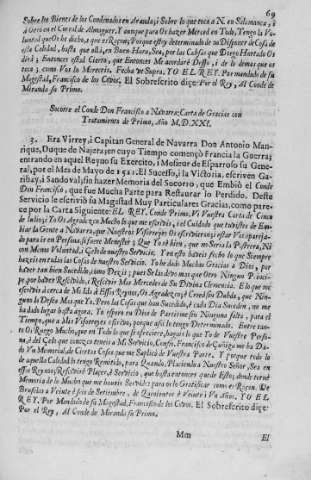 69
Sobre los Bienes de los Condenados en Aranda; Sobre lo que toca a N. en Salamanca, i
à Otros en el Corral de Almaguer, Y aunque para Os hazer Merced en Todo, Tengo la Vo-
luntad que Os he dicho, è que es Razon; Porque estoy determinado de no Disponer de Cosa de
esta Calidad, hasta que allà, en Buen Hora, Sea, por las Causas que Diego Hurtado Os
dirà; Entonces estad Cierto, que Entonces Me acordarè Desso, i de lo demas que os
toca; como Vos lo Mereceis. Fecha ut Supra. YO EL REY. Por mandado de su
Magestad, Francisco de los Cobos. El Sobrescrito dize: Por el Rey, Al Conde de
Miranda su Primo.
Socorre el Conde Don Francisco a Navarra: Carta de Gracias con
Tratamiento de Primo, Año M.D.XXI.
3. Era Virrey, i Capitan General de Navarra Don Antonio Man-
rique, Duque de Najera, en cuyo Tiempo començò Francia la Guerra;
entrando en aquel Reyno su Exercito, i Mosiur de Esparroso su Gene-
ral, por el Mes de Mayo de 1521. El Sucesso, i la Victoria, escriven Ga-
ribay, i Sandoval, sin hazer Memoria del Socorro, que Embiò el Conde
Don Francisco, que fue Mucha Parte para Restaurar lo Perdido. Deste
Servicio se escriviò su Magestad Muy Particulares Gracias, como pare-
ce por la Carta Siguiente: EL REY. Conde Primo, Vi Vuestra Carta de Cinco
de Iulio; Yo Os Agradezco Mucho lo que en ella dezis, i el Cuidado que tuvistes de Em-
biar la Gente a Navarra, que Nuestros Visorreyes Os escrivieron; i estar Vos apareja-
do para ir en Persona, si fuere Menester; Que Yo sè bien, que no Seria la Postrera, Ni
con Menos Voluntad, i Zelo de nuestro Servicio. Y en esto haveis fecho lo que Siempre
hazeis en todas las Cosas de nuestro Servicio. Yo he dado Muchas Gracias à Dios, por
haver tan bien Sucedido, como Dezis; pues Se las devo mas que Otro Ningun Princi-
pe por haver Recebido, i Recebir Mas Mercedes de Su Divina Clemencia. E lo que me
escrivis à cerca de Mi Ida à Essos Reynos, Os Agradezco; è Creed sin Dubda, que Nin-
guno lo Desea Mas que Yo. Pero las Cosas que han Sucedido, è cada Dia Suceden, no me
ha dado lugar hasta agora. Yo espero en Dios de Partirme sin Ninguna falta, para el
Tiempo, que a Mis Visorreyes escrivo, porque assi lo tengo Determinado. Entre tan-
to Os Ruego Mucho, que en Todo lo que se ofreciere, hagais lo que Yo de Vuestra Perso-
na, è del Zelo que conozco teneis a Mi Servicio, Confio. Francisco de Zuñiga me ha Da-
do Vn Memorial de Ciertas Cosas que me Suplicò de Vuestra Parte, Y porque todo lo
de aquella Calidad lo tengo Remitido, para Quando, Placiendo a Nuestro Señor, Sea en
essos Reynos, Recibirè Plazer, è Servicio, que hasta entonces quede Esto; donde terné
Memoria de lo Mucho que me haveis Servido; para os lo Gratificar como es Razon. De
Bruselas a Veinte i seis de Setiembre, de Quinientos è Veinte i Vn Años. YO EL
REY. Por Mandado de su Magestad, Francisco de los Cobos. El Sobrescrito dize:
Por el Rey, Al Conde de Miranda su Primo.
Mm
El